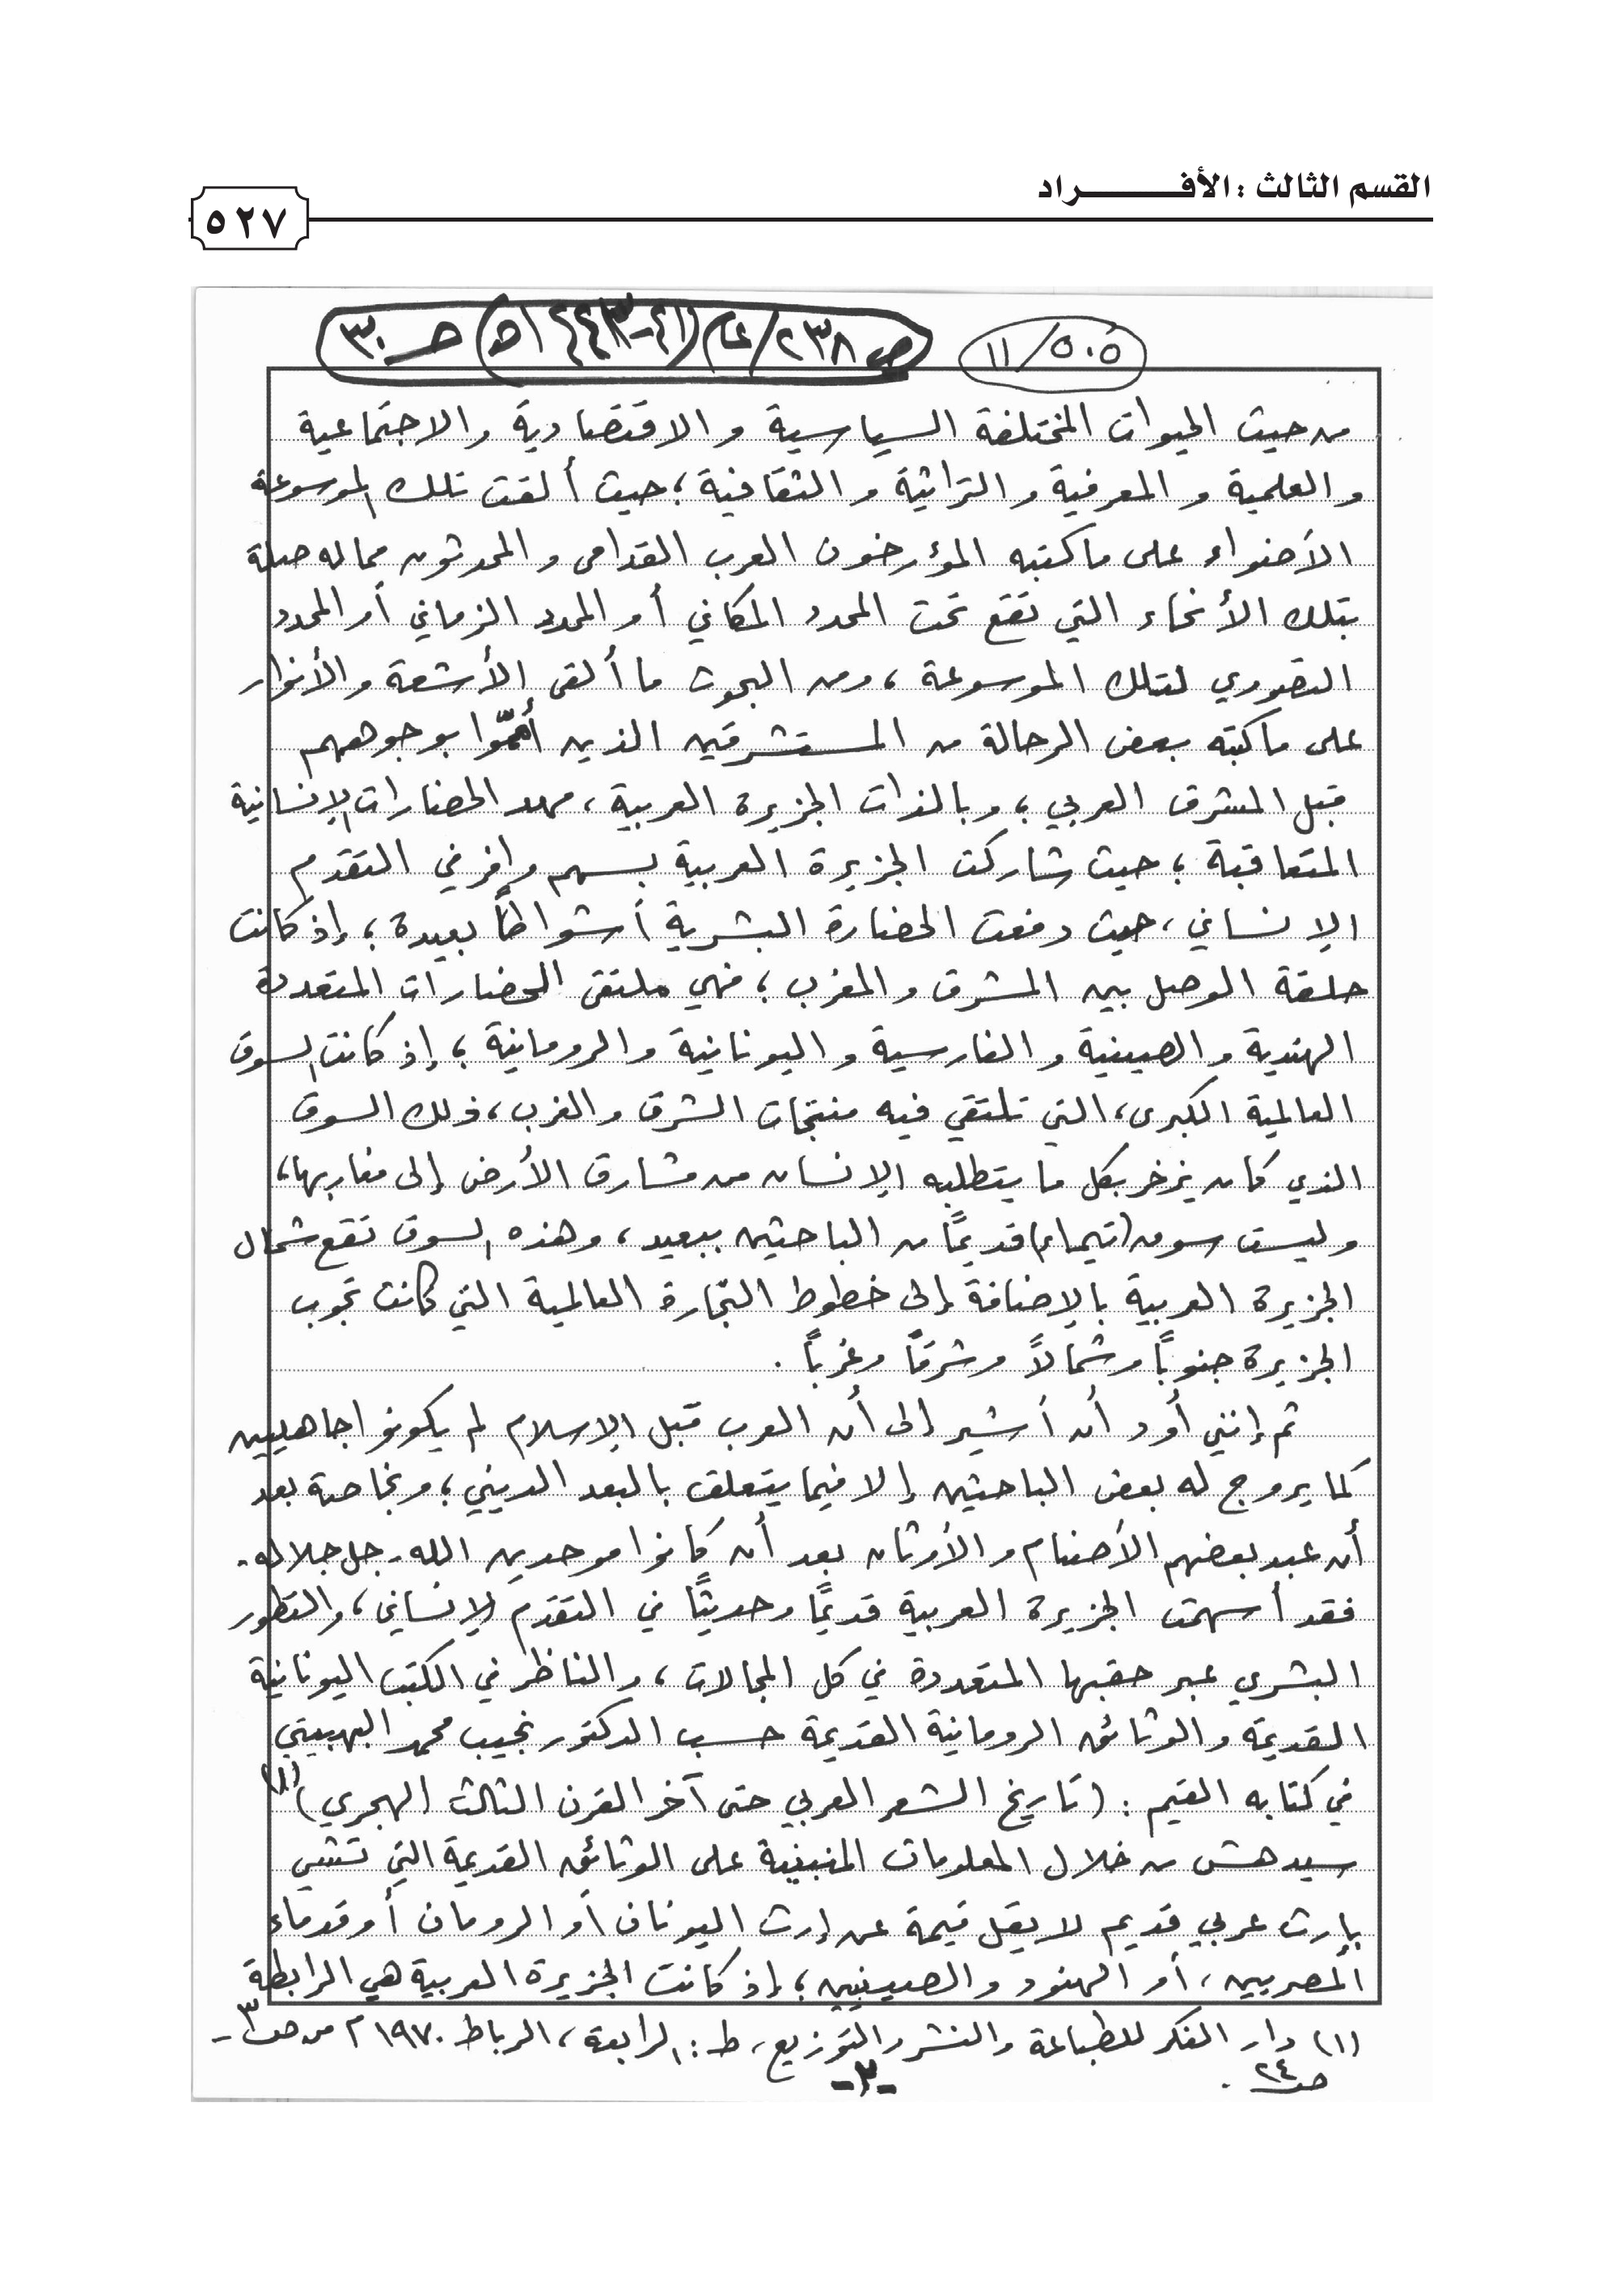 القسم الثالث : الأفـــــــراد
٥٢٧
٥٠٥/١١
ص ٢٣٨/عام
من حيث الحيوات المختلفة السياسية والاقتصادية والاجتماعية
والعلمية والمعرفية والتراثية والثقافية ؛ حيث ألقت تلك الموسوعة
الأضواء على ما كتبه المؤرخون العرب القدامى والمحدثون مما له صلة
بتلك الأنحاء التي تقع تحت المحدد المكاني أو المحدد الزماني أو المحدد
التصوري لتلك الموسوعة ، ومن البحوث ما ألقى الأشعة والأنوار
على ما كتبه بعض الرحالة من المستشرقين الذين أمّوا بوجوههم
قبل المشرق العربي ؛ وبالذات الجزيرة العربية ، مهد الحضارات الإنسانية
المتعاقبة ؛ حيث شاركت الجزيرة العربية بسهم وافر في التقدم
الإنساني ، حيث دفعت الحضارة البشرية أشواطاً بعيدة ؛ إذ كانت
حلقة الوصل بين المشرق والمغرب ؛ فهي ملتقى الحضارات المتعددة
الهندية والصينية والفارسية واليونانية والرومانية ؛ إذ كانت السوق
العالمية الكبرى ، التي تلتقي فيه منتجات الشرق والغرب ، ذلك السوق
الذي كان يزخر بكل ما يتطلبه الإنسان من مشارق الأرض إلى مغاربها ،
وليست سوق (تيماء) قديمًا من الباحثين ببعيد ، وهذه السوق تقع شمال
الجزيرة العربية بالإضافة إلى خطوط التجارة العالمية التي كانت تجوب
الجزيرة جنوباً وشمالاً وشرقاً وغرباً .
ثم إنني أود أن أشير إلى أن العرب قبل الإسلام لم يكونوا جاهليين
كما يروج له بعض الباحثين إلا فيما يتعلق بالبعد الديني ؛ وبخاصة بعد
أن عبد بعضهم الأصنام والأوثان بعد أن كانوا موحدين الله - جل جلاله -
فقد أسهمت الجزيرة العربية قديمًا وحديثًا في التقدم الإنساني ، والتطور
البشري عبر حقبها المتعددة في كل المجالات ، والناظر في الكتب اليونانية
القديمة والوثائق الرومانية القديمة حسب الدكتور نجيب محمد البهبيتي
في كتابه القيم : (تاريخ الشعر العربي حتى آخر القرن الثالث الهجري)(١)
سيدهش من خلال المعلومات المنبنية على الوثائق القديمة التي تشي
بإرث عربي قديم لا يقل قيمة عن إرث اليونان أو الرومان أو قدماء
المصريين ، أو الهنود والصينيين ؛ إذ كانت الجزيرة العربية هي الرابطة
(١) دار الفكر للطباعة والنشر والتوزيع ، ط : الرابعة ، الرباط ١٩٧٠ م من ص ٣ -
ص ٢٤ .
-٣-